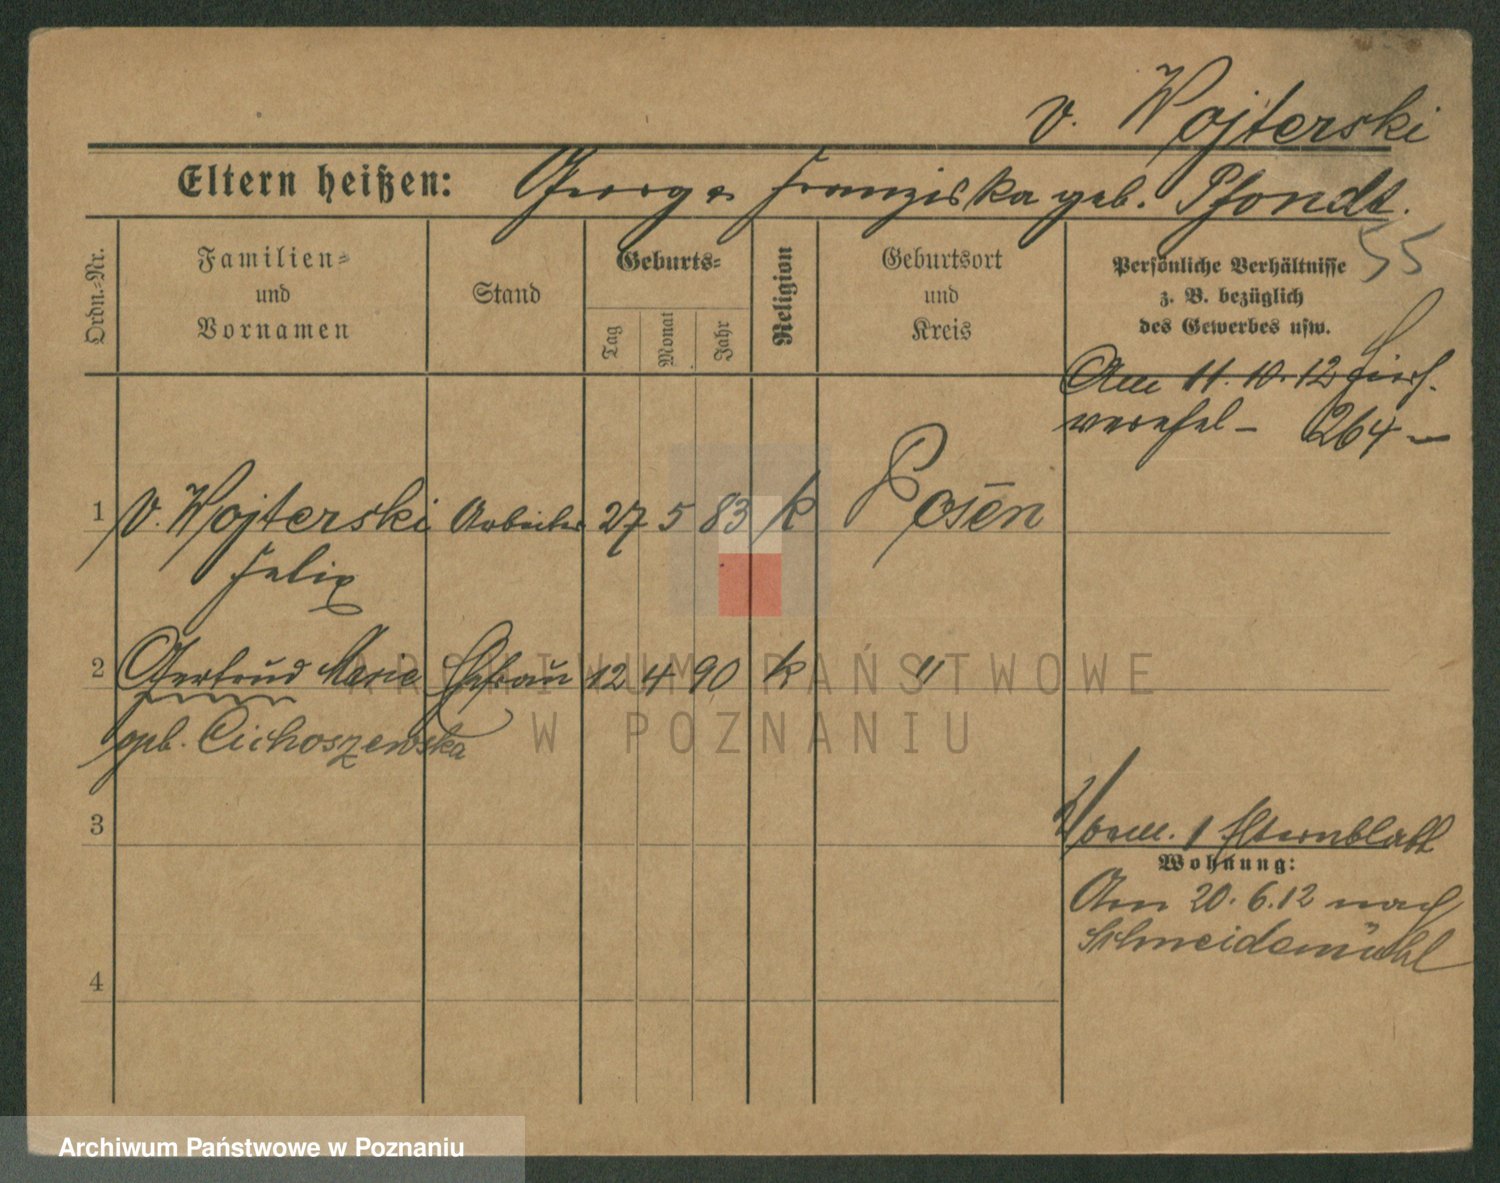 v. Wojterski
Eltern heißen: George Franziska geb. Pfondt.
55
Ordn.-Nr.
Familien-
und
Vornamen
Stand
Geburts-
Tag
Monat
Jahr
Religion
Geburtsort
und
Kreis
Persönliche Verhältnisse
z. B. bezüglich
des Gewerbes usw.
Am 11.10.12
264
1 v. Wojterski Arbeiter 27 5 83 k Posen
Felix
2 Gertrud Marie Ehefrau 12 4 90 k "
geb. Cichoszewska
3
1 Elternblatt
Wohnung:
Am 20.6.12 nach
Schneidemühl
4
ARCHIWUM PAŃSTWOWE
W POZNANIU
Archiwum Państwowe w Poznaniu